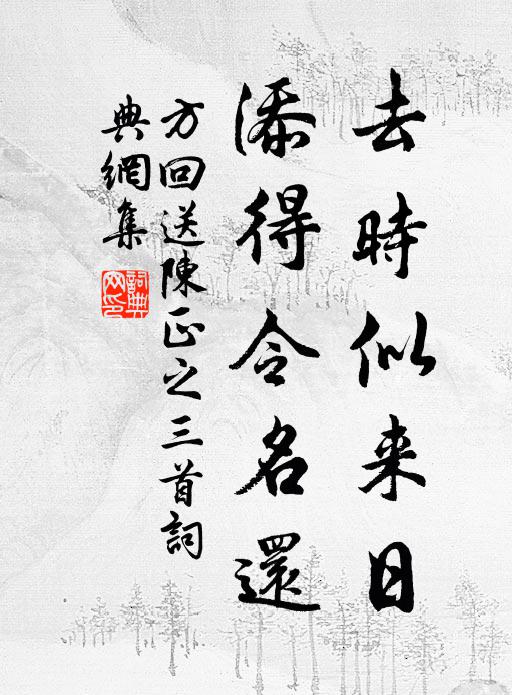 去時似来日
添得令名還
方回送陳正之三首詞
典網集
詞典網印